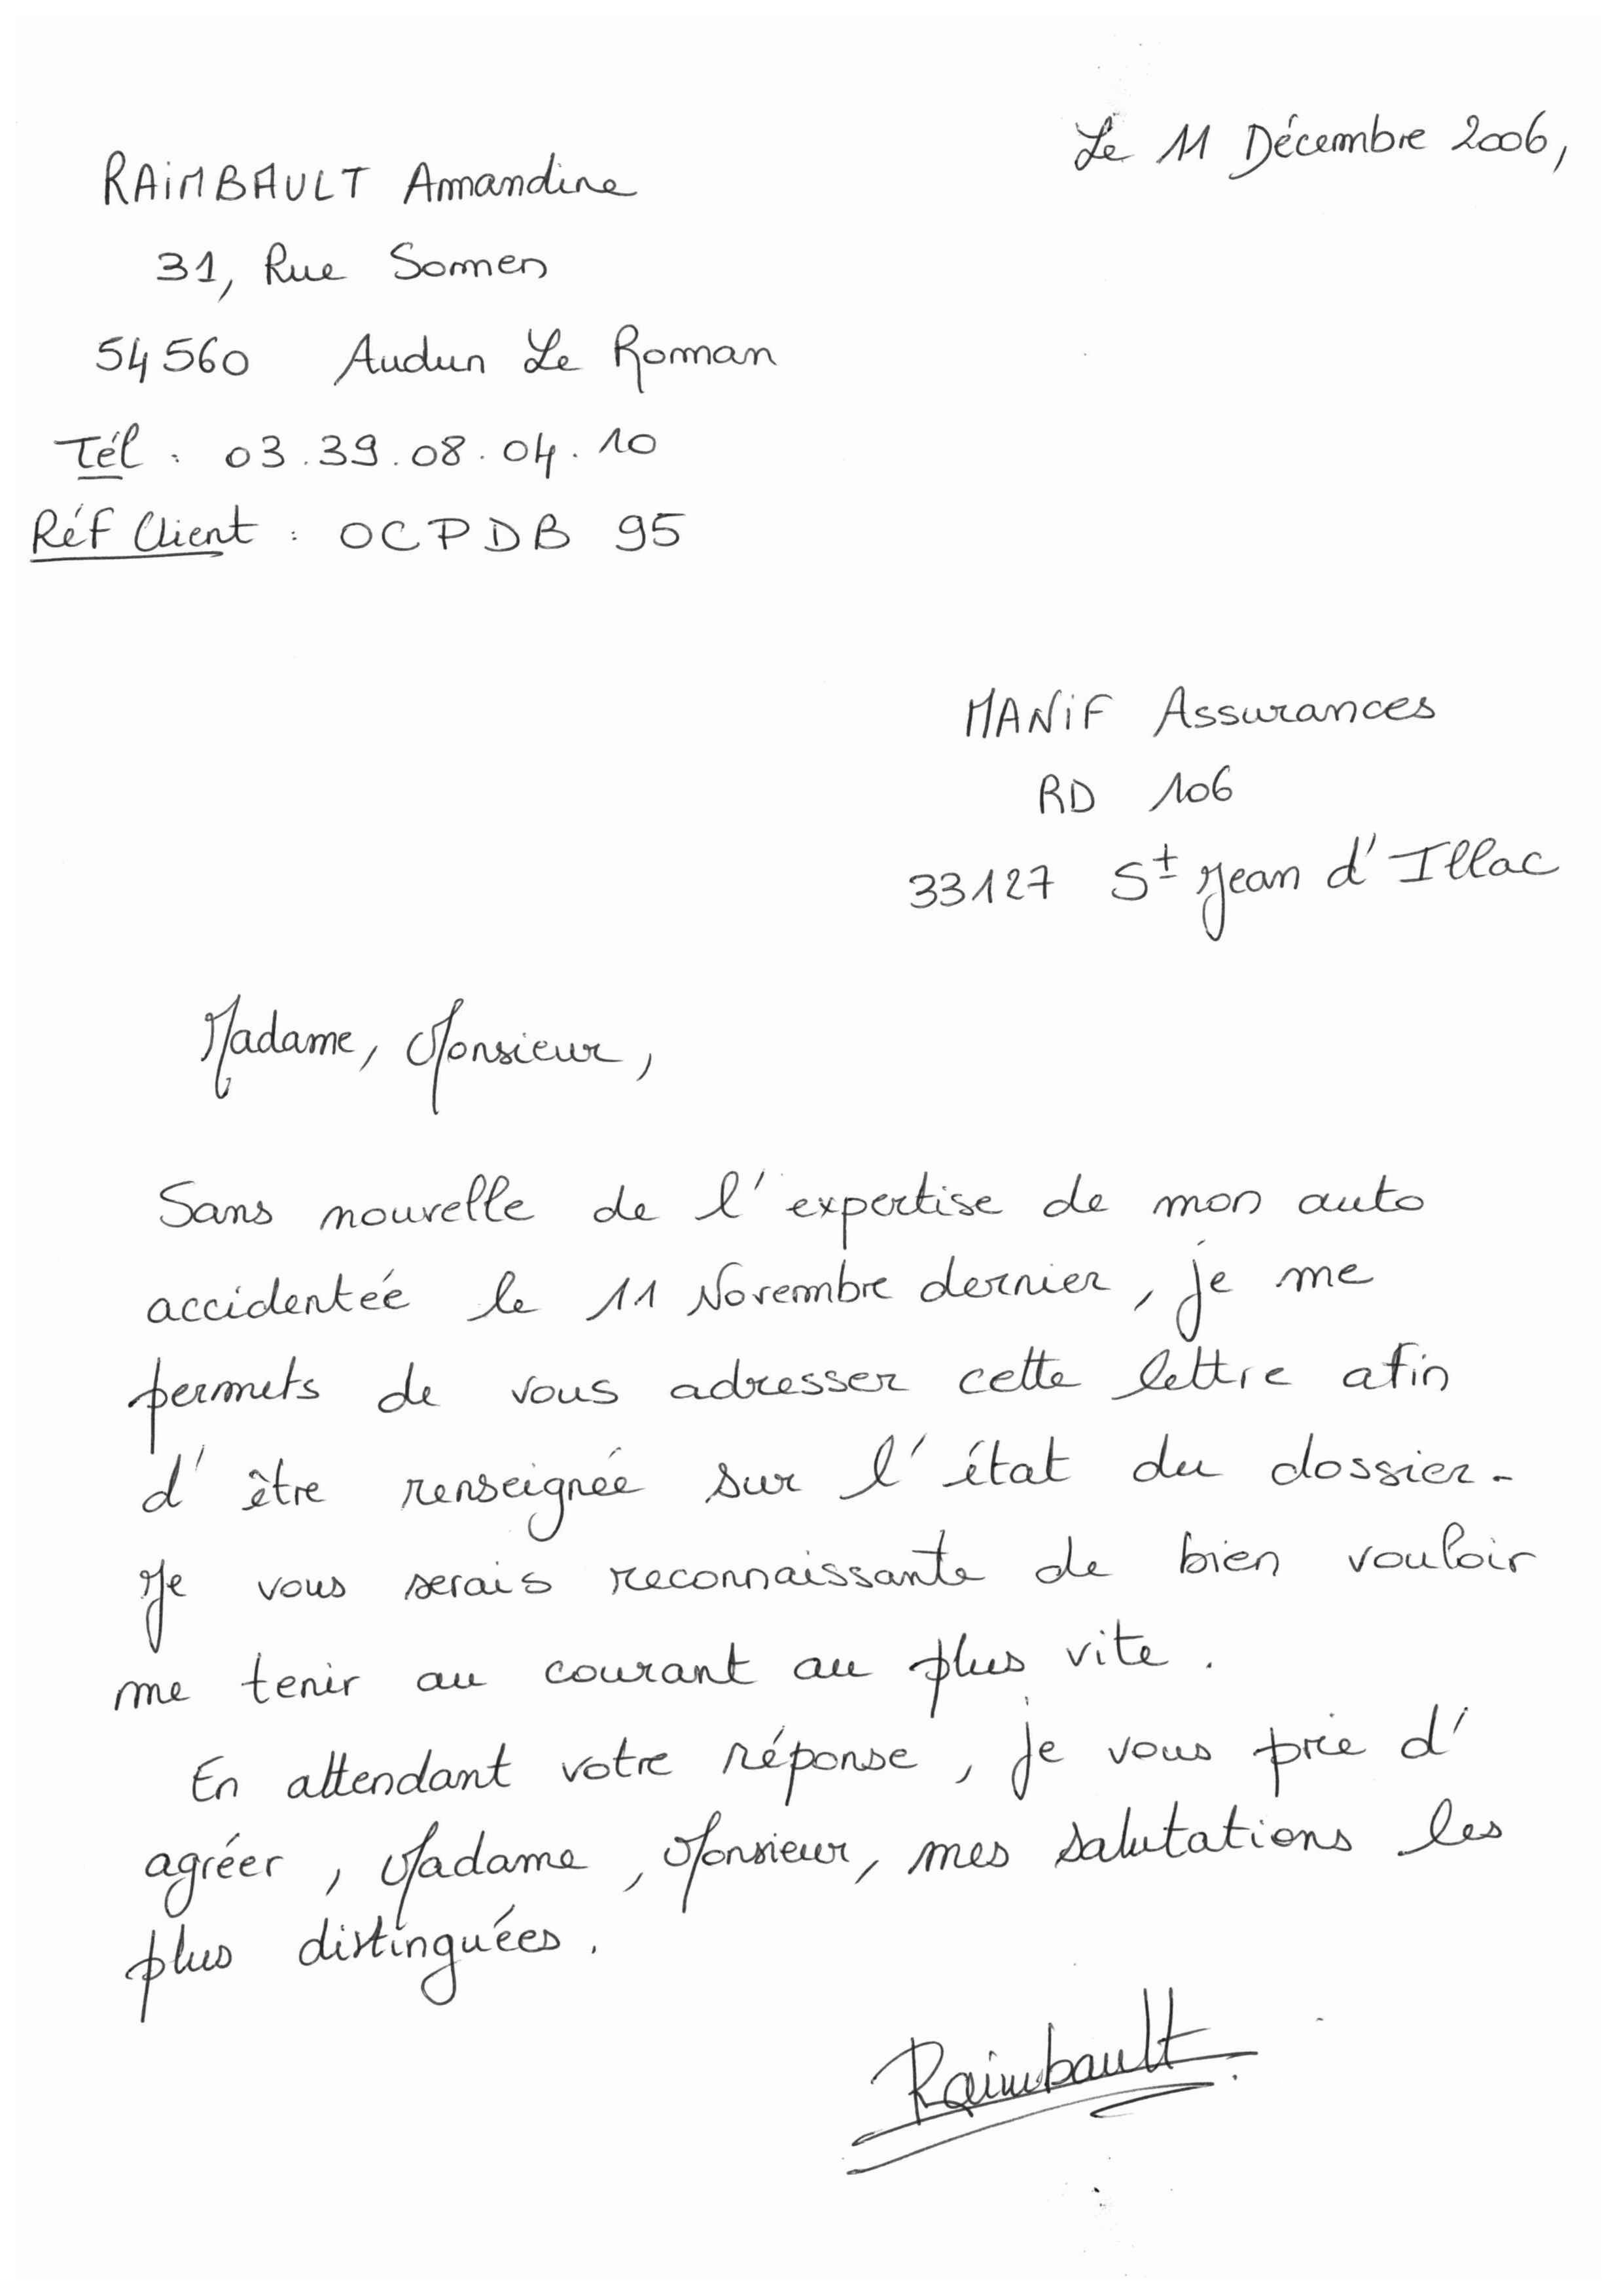 Le 11 Décembre 2006,
RAiMBAULT Amandine
31, Rue Sommen
54560 Audun Le Roman
Tél : 03.39.08.04.10
Réf Client : OCPDB 95
MANiF Assurances
RD 106
33127 St Jean d'Illac
Madame, Monsieur,
Sans nouvelle de l'expertise de mon auto
accidentée le 11 Novembre dernier, je me
permets de vous adresser cette lettre afin
d'être renseignée sur l'état du dossier.
Je vous serais reconnaissante de bien vouloir
me tenir au courant au plus vite.
En attendant votre réponse, je vous prie d'
agréer, Madame, Monsieur, mes salutations les
plus distinguées.
Raimbault